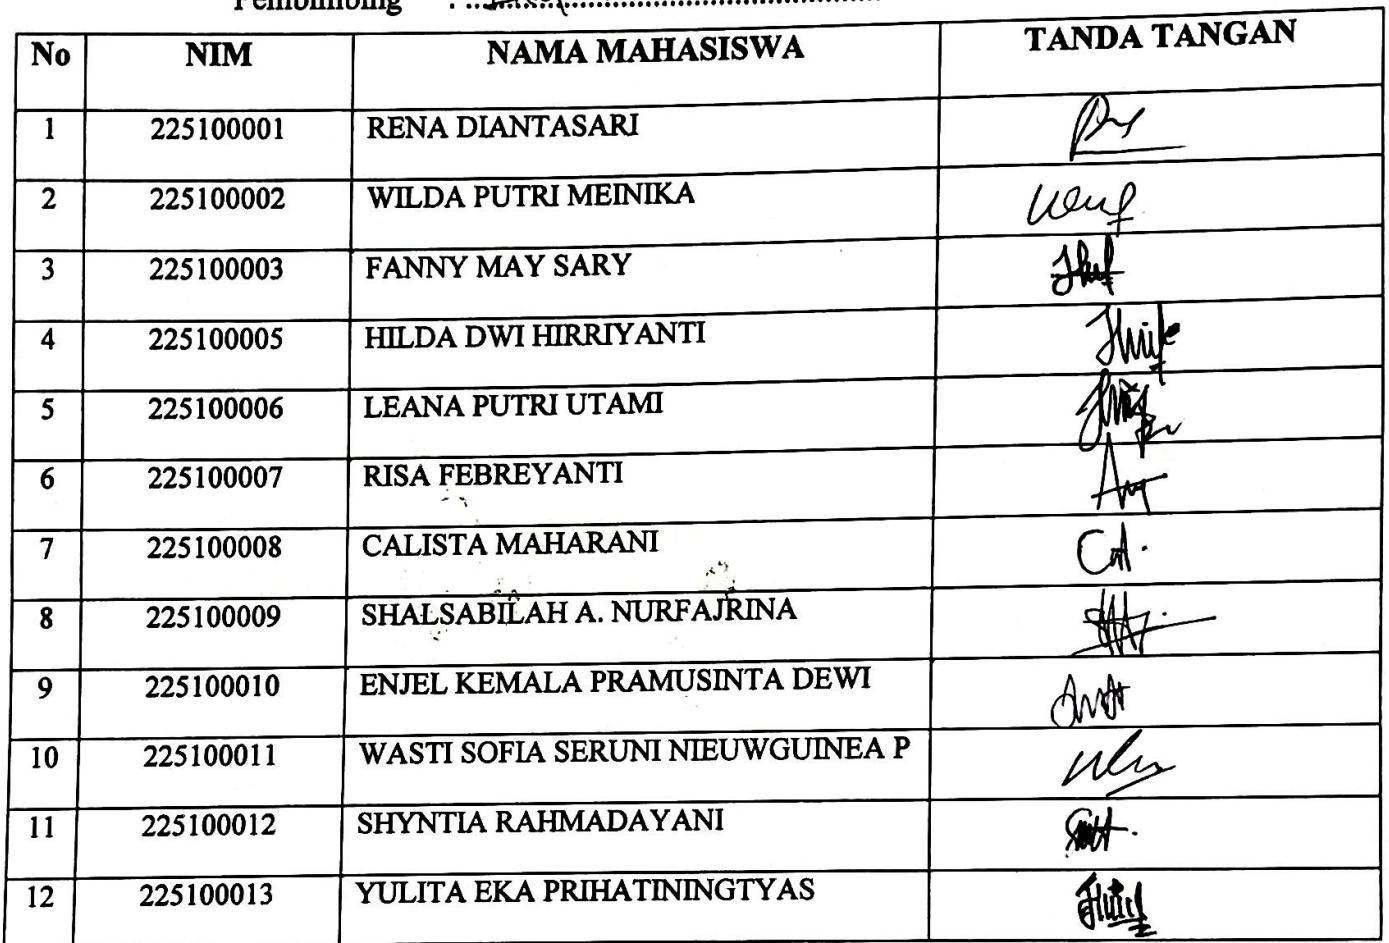 Pembimbing :
No NIM NAMA MAHASISWA TANDA TANGAN
1 225100001 RENA DIANTASARI
2 225100002 WILDA PUTRI MEINIKA
3 225100003 FANNY MAY SARY
4 225100005 HILDA DWI HIRRIYANTI
5 225100006 LEANA PUTRI UTAMI
6 225100007 RISA FEBREYANTI
7 225100008 CALISTA MAHARANI
8 225100009 SHALSABILAH A. NURFAJRINA
9 225100010 ENJEL KEMALA PRAMUSINTA DEWI
10 225100011 WASTI SOFIA SERUNI NIEUWGUINEA P
11 225100012 SHYNTIA RAHMADAYANI
12 225100013 YULITA EKA PRIHATININGTYAS